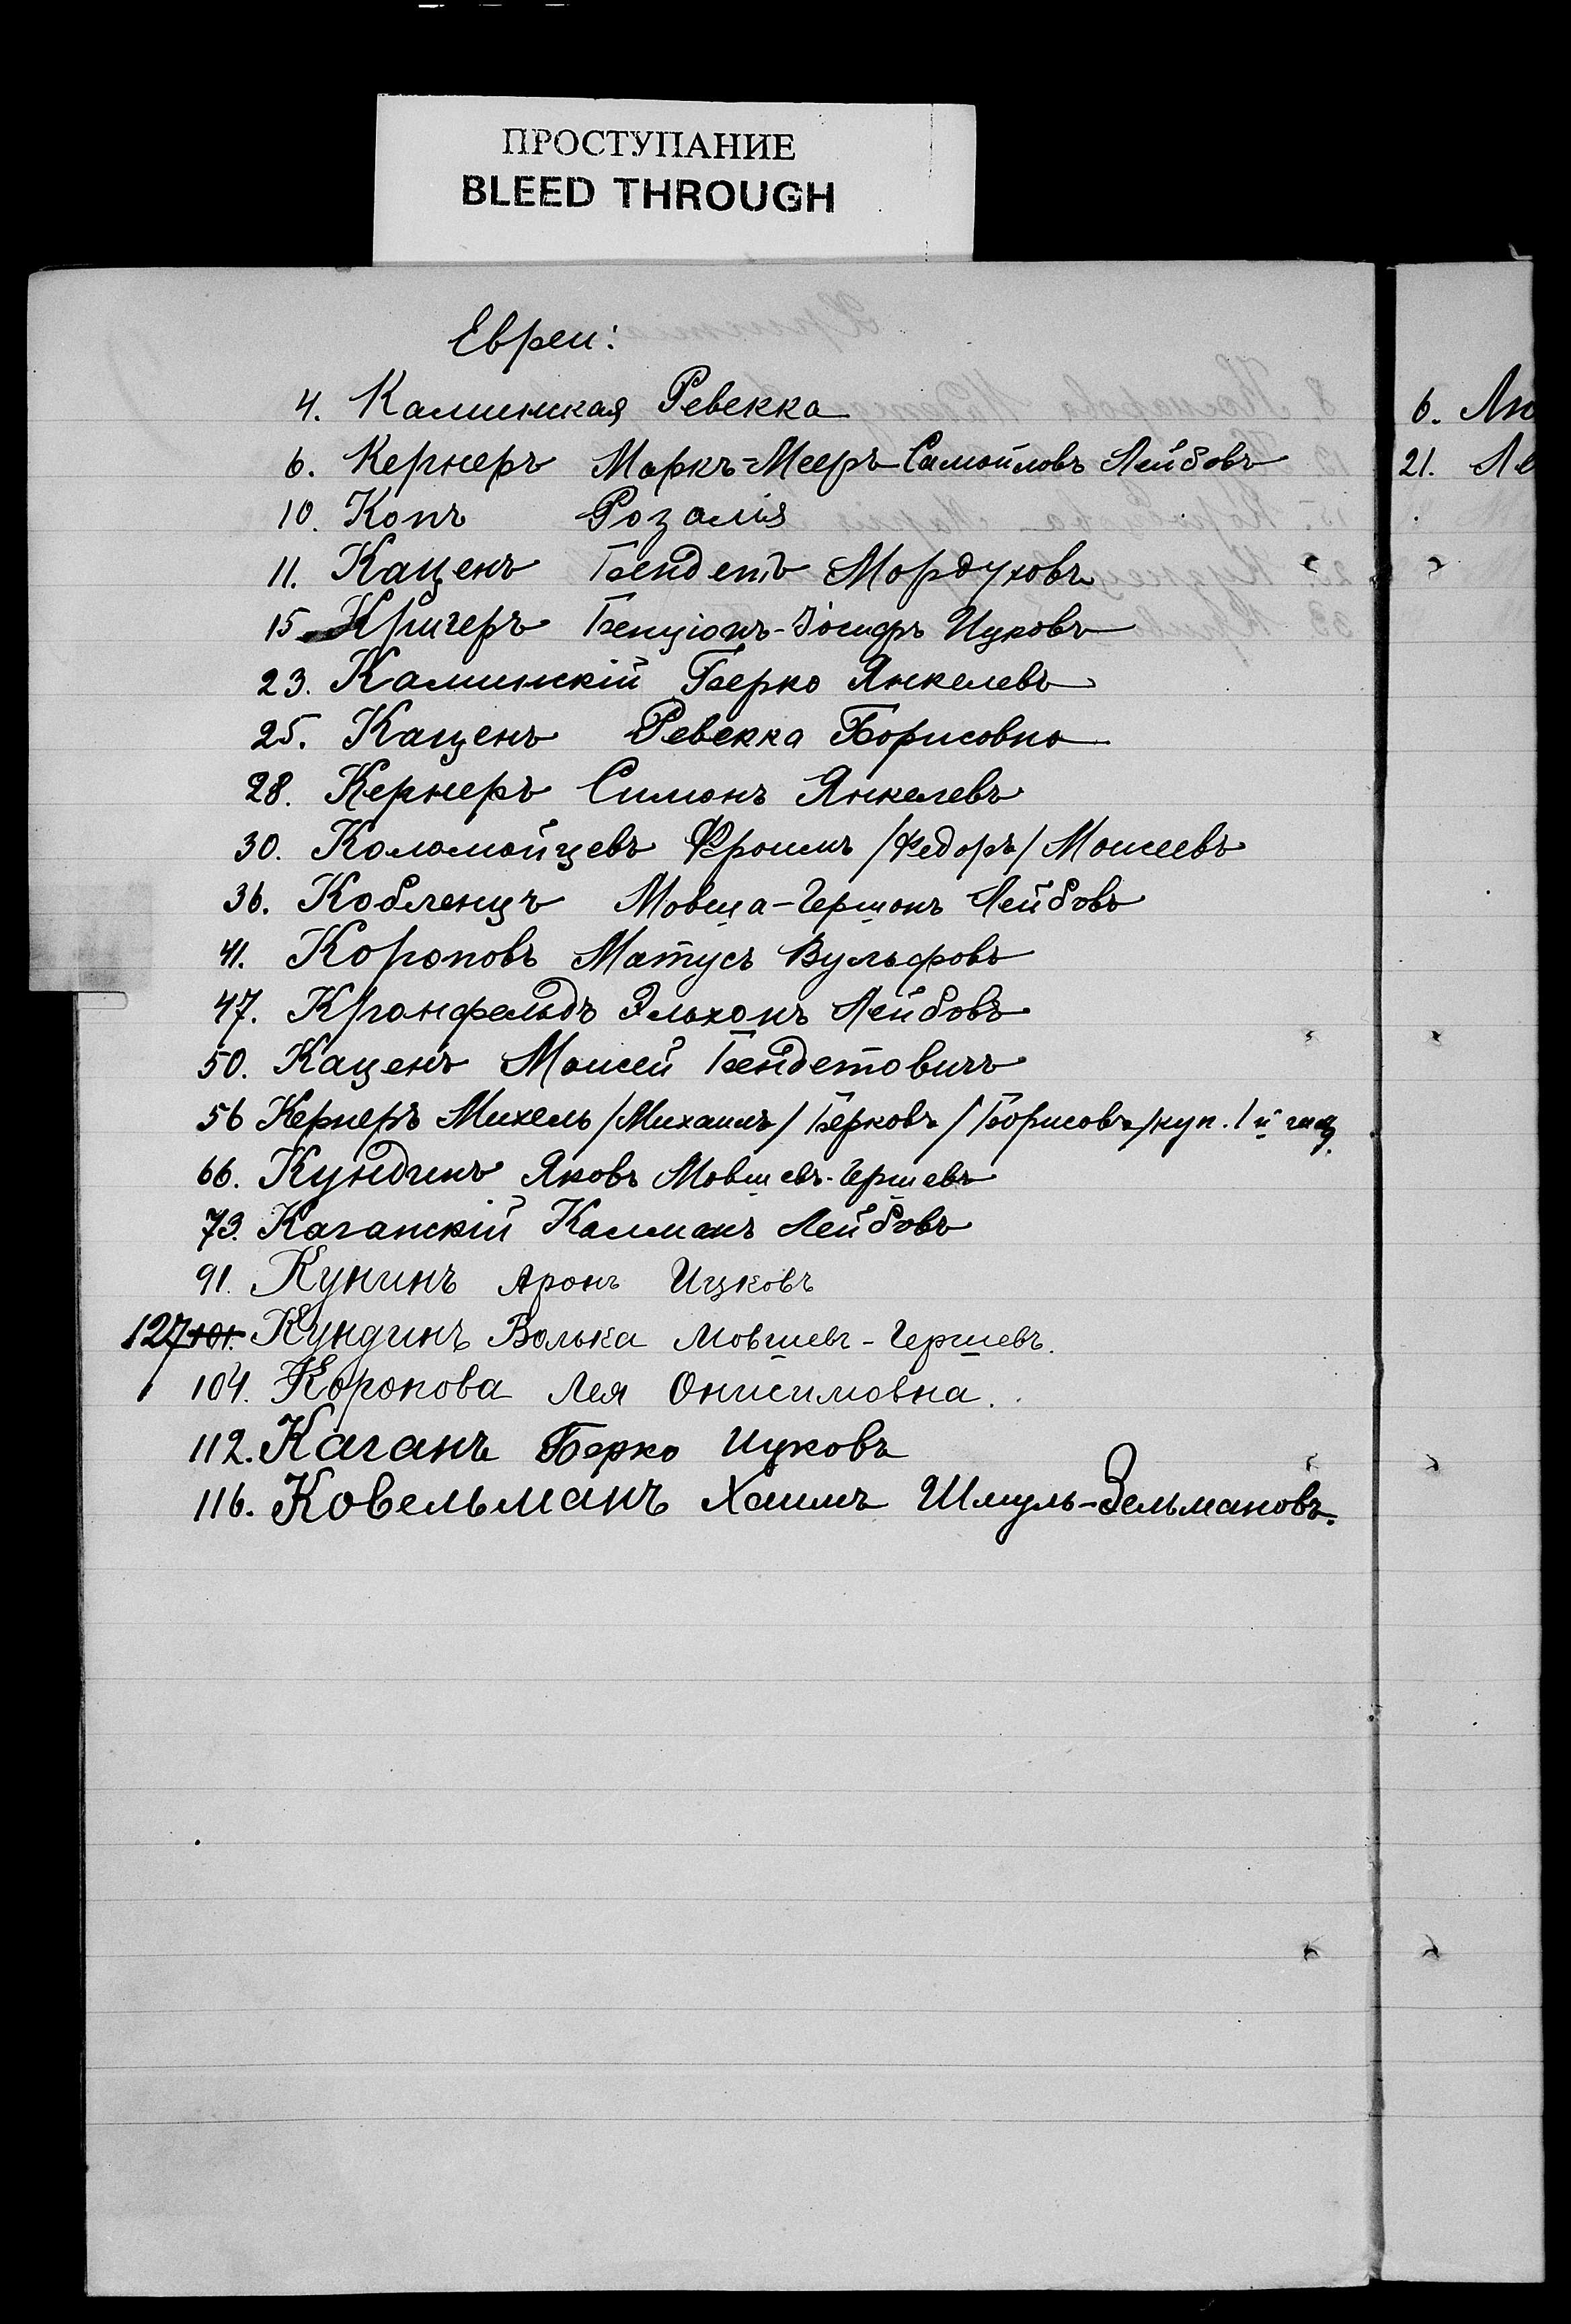 ПРОСТУПАНИЕ
BLEED THROUGH
Евреи:
4. Каминская Ревекка
6. Кернеръ Маркъ-Мееръ-Самойловъ Лейбовъ
10. Копъ Розалія
11. Каценъ Бендетъ Мордуховъ
15 Кригеръ Бенціонъ-Іосифъ Ицковъ
23. Каминскій Берко Янкелевъ
25. Каценъ Ревекка Борисовна
28. Кернеръ Симонъ Янкелевъ
30. Коломойцевъ Фроимъ /Федоръ/ Моисеевъ
36. Кобленцъ Мовша-Гершонъ Лейбовъ
41. Короповъ Матусъ Вульфовъ
47. Кронфельдъ Эльхонъ Лейбовъ
50. Каценъ Моисей Бендетовичъ
56 Кернеръ Михель /Михаилъ/ Берковъ /Борисовъ/ куп. 1й гил.
66. Кундинъ Яковъ Мовшевъ-Гершевъ
73. Каганскій Калманъ Лейбовъ
91. Кунинъ Аронъ Ицковъ
127 101. Кундинъ Волька Мовшевъ-Гершевъ.
104. Коропова Лея Онисимовна.
112. Каганъ Берко Ицковъ
116. Ковельманъ Хаимъ Шмуль-Зельмановъ.
6. Лю
21. Ле